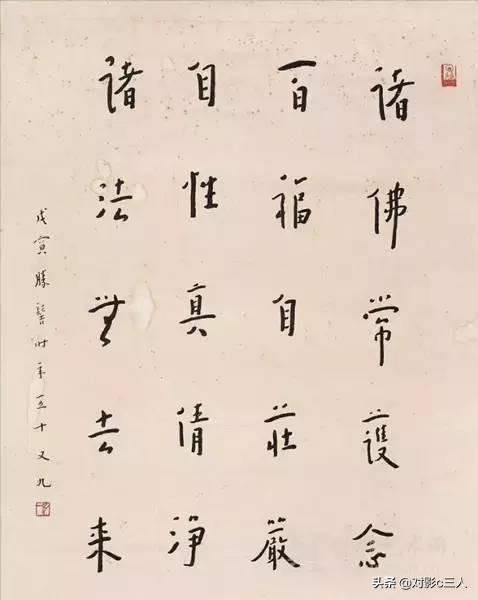 諸佛常護念
百福自莊嚴
自性真清淨
諸法無去來
戊寅勝髻時年五十又九
头条 @对影c三人